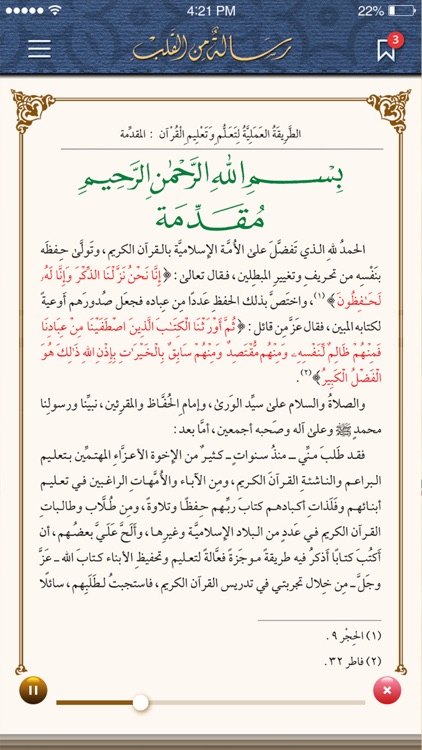 4:21 PM
22%
رسالة من القلب
3
الطَّرِيقَةُ العَمَلِيَّةُ لِتَعَلُّمِ وَتَعْلِيمِ الْقُرْآن : المقدِّمة
بِسْمِ اللهِ الرَّحْمٰنِ الرَّحِيمِ
مُقَدِّمَة
الحمدُ للهِ الـذي تَفضَّلَ علىٰ الأُمَّـة الإسلاميَّة بالقرآن الكريم، وتَولَّىٰ حِفظَه
بنَفْسِه من تحريفِ وتغييرِ المبطِلين، فـقال تعالىٰ: ﴿إِنَّا نَحْنُ نَزَّلْنَا ٱلذِّكْرَ وَإِنَّا لَهُۥ
لَحَـٰفِظُونَ﴾(١)، واختصَّ بذلك الحفظِ عددًا مِن عِباده فجعَل صُدورَهم أوعيةً
لكتابه المبين، فقال عزَّ مِن قائل: ﴿ثُمَّ أَوْرَثْنَا ٱلْكِتَـٰبَ ٱلَّذِينَ ٱصْطَفَيْنَا مِنْ عِبَادِنَا
فَمِنْهُمْ ظَالِمٌ لِّنَفْسِهِۦ وَمِنْهُم مُّقْتَصِدٌ وَمِنْهُمْ سَابِقٌ بِٱلْخَيْرَٰتِ بِإِذْنِ ٱللهِ ذَٰلِكَ هُوَ
ٱلْفَضْلُ ٱلْكَبِيرُ﴾(٢).
والصلاةُ والسلام علىٰ سيِّد الورىٰ، وإمامِ الحُفَّاظ والمقرِئين، نبيِّنا ورسولِنا
محمدٍ ﷺ وعلىٰ آله وصَحبه أجمعين، أمَّا بعد:
فقـد طَلَبَ مـنِّي ـ منذُ سـنوات ـ كـثيرٌ من الإخوة الأعـزَّاءِ المهتمِّين بتـعليم
البراعـم والناشئـةِ القرآنَ الكريم، ومِن الآباء والأُمَّهاتِ الراغـبين في تعليـم
أبنائهم وفَلَذاتِ أكبادهم كتابَ ربِّهم حِفظًا وتلاوةً، ومِن طُلَّاب وطالبات
القرآن الكريم في عَددٍ من البلاد الإسلاميَّة وغيرها، وأَلَحَّ عَلَيَّ بعضُهـم، أن
أَكتُبَ كتابًا أَذكُرُ فيه طريقةً موجَزةً فعَّالةً لتعليم وتحفيظِ الأبناء كتابَ الله ـ عَزَّ
وجَلَّ ـ مِن خِلال تجرِبَتي في تدريس القرآن الكريم، فاستَجبتُ لـطَلَبِهم، سائلًا
(١) الحِجْر ٩ .
(٢) فاطر ٣٢ .